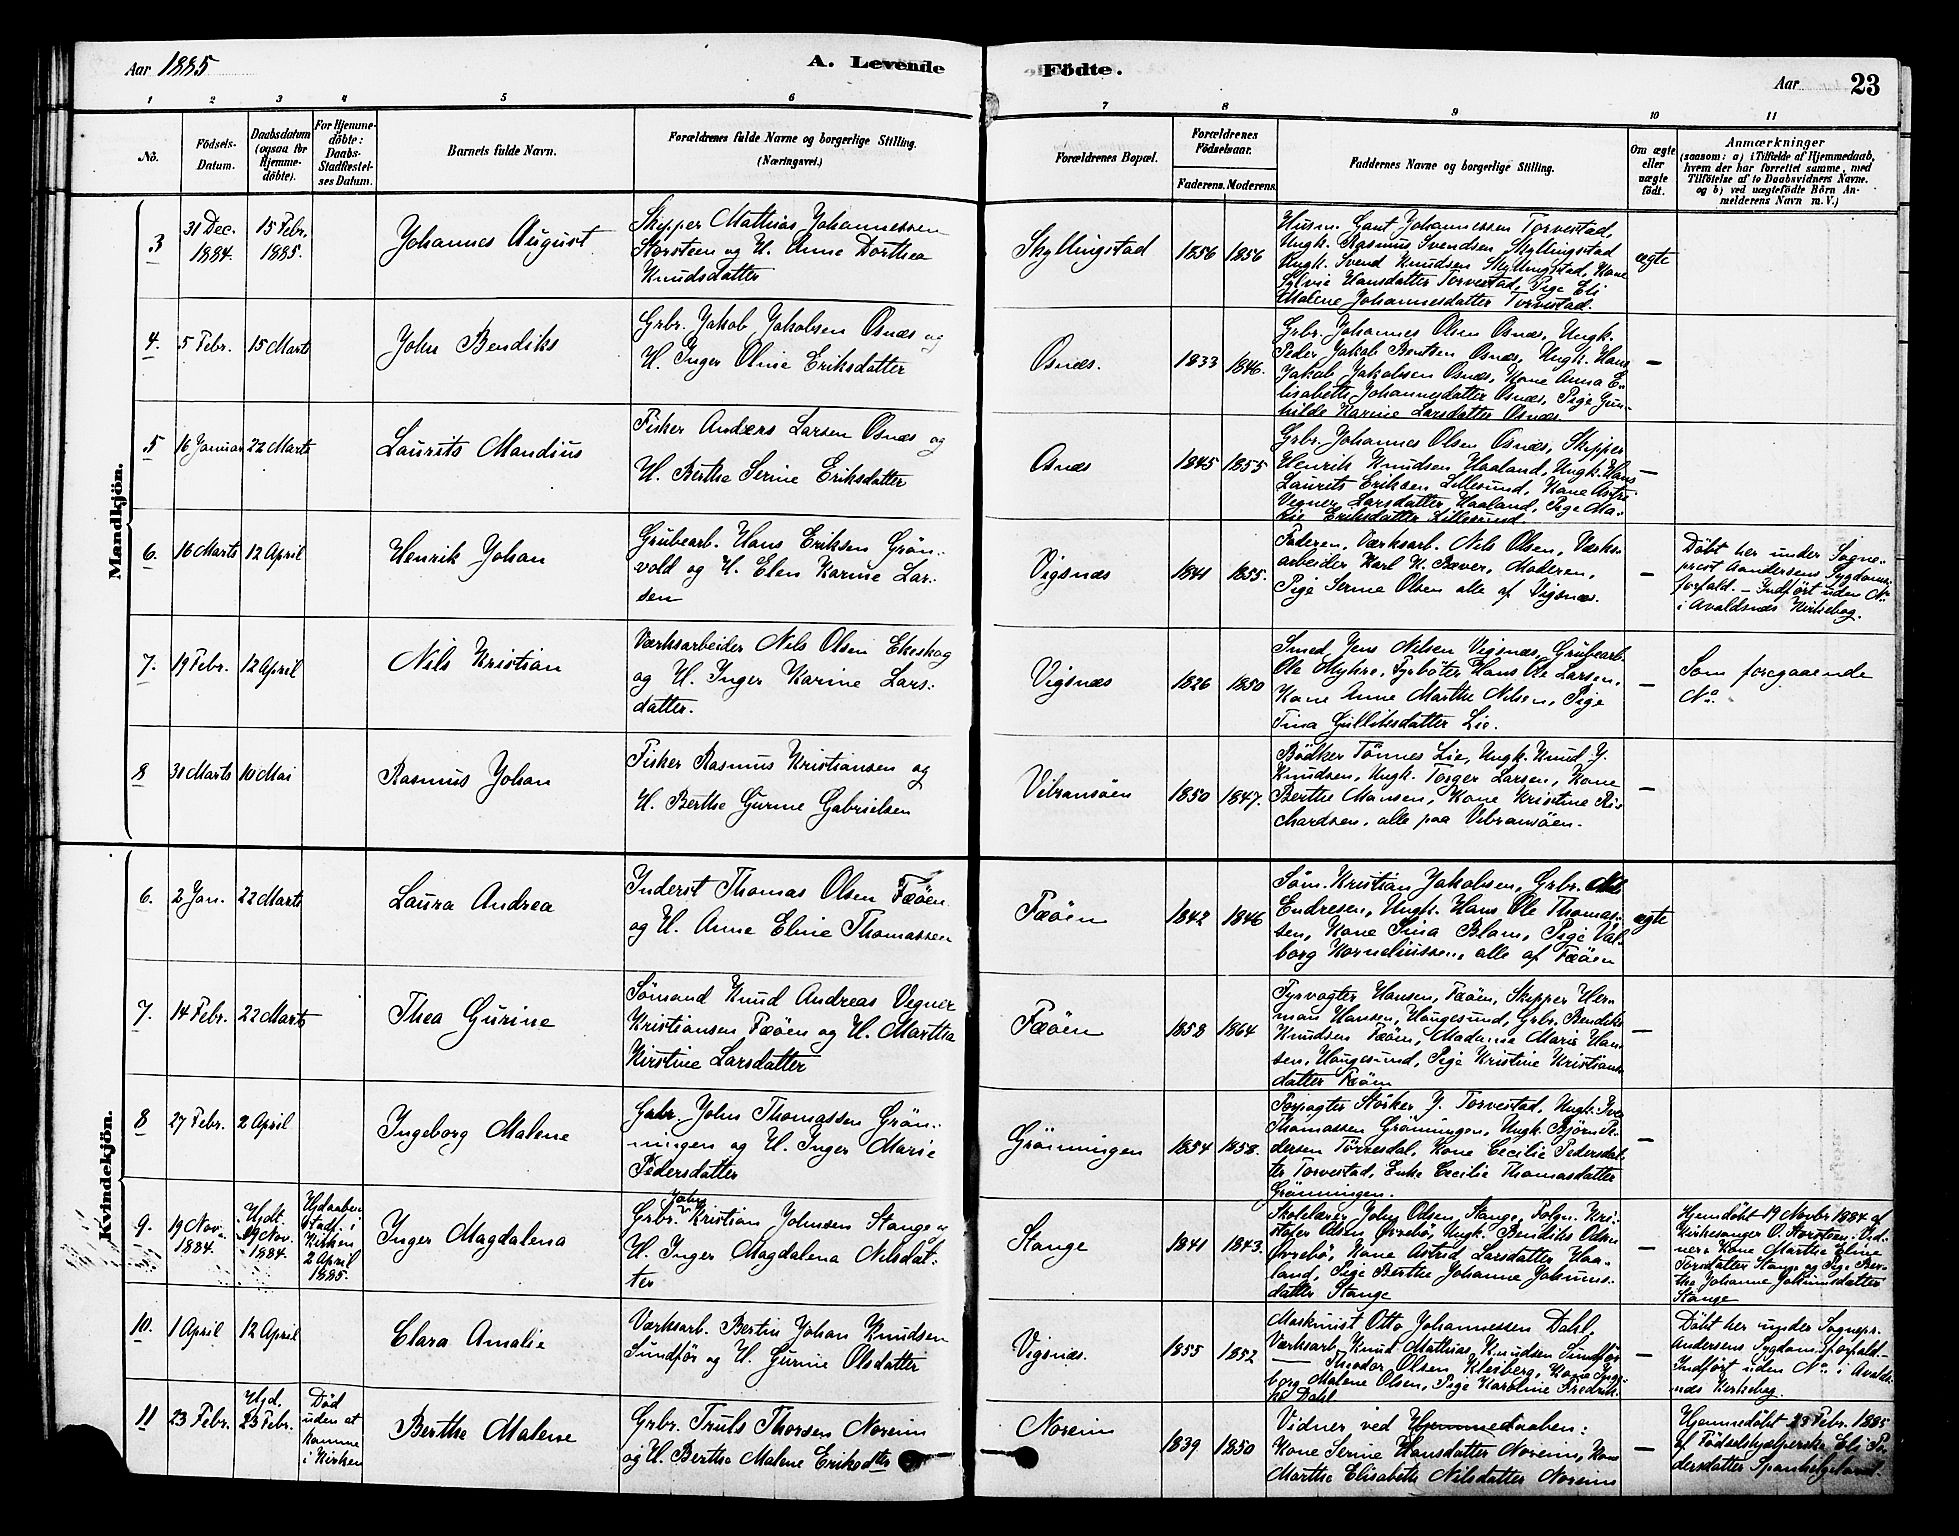 Aar 1885
A. Levende Födte.
Aar 23
1 2 3 4 5 6 7 8 9 10 11
No.
Födsels-
Datum.
Daabsdatum
(ogsaa for
Hjemme-
döbte).
For Hjemme-
döbte:
Daabs-
Stadfæstel-
ses Datum.
Barnets fulde Navn.
Forældrenes fulde Navne og borgerlige Stilling.
(Næringsvei.)
Forældrenes Bopæl.
Forældrenes
Födselsaar.
Faderens. Moderens.
Faddernes Navne og borgerlige Stilling.
Om ægte
eller
uægte
födt.
Anmærkninger
(saasom: a) i Tilfælde af Hjemmedaab,
hvem der har forrettet samme, med
Tilföielse af to Daabsvidners Navne.
og b) ved uægtefödte Börn An-
melderens Navn m. V.)
Mandkjön.
3
31 Dec.
1884.
15 Febr.
1885.
Johannes August
Skipper Mathias Johannessen
Storsteen og H. Anne Dorthea
Knudsdatter
Skyllingstad
1856 1856
Husm. Gaut Johannessen Torvestad,
Ungk. Rasmus Svendsen Skyllingstad
Ungk. Svend Knudsen Skyllingstad, Kone
Sylvie Hansdatter Torvestad, Pige Eli
Malene Johannesdatter Torvestad.
ægte
4.
5 Febr.
15 Marts
John Bendiks
Grbr. Jakob Jakobsen Osnæs og
H. Inger Oline Eriksdatter
Osnæs.
1833 1846.
Grbr. Johannes Olsen Osnæs, Ungk.
Peder Jakob Bentsen Osnæs, Ungk. Hans
Jakob Jakobsen Osnæs, Kone Anna E-
lisabeth Johannesdatter Osnæs, Pige Gun-
hilde Karine Larsdatter Osnæs.
—
5
16 Januar
22 Marts
Laurits Mandius
Fisker Anders Larsen Osnæs og
H. Berthe Serine Eriksdatter
Osnæs
1845 1855
Grbr. Johannes Olsen Osnæs, Skipper
Henrik Knudsen Haaland, Ungk. Hans
Laurits Eriksen Lillesund, Kone
Vegner Larsdatter Haaland, Pige Ma-
lie Eriksdatter Lillesund
—
6.
16 Marts
12 April
Henrik Johan
Grubearb. Hans Eriksen Grön-
vold og H. Elen Karine Lar-
sen
Vigsnæs
1841 1855.
Faderen, Værksarb. Nils Olsen, Værks-
arbeider Karl K. Bæver, Moderen,
Pige Serine Olsen alle af Vigsnæs.
—
Döbt her under Sogne-
prest Aandersens Sygdoms-
forfald. — Indfört uden No
i Avaldsnæs Kirkebog.
7.
19 Febr.
12 April
Nils Kristian
Værksarbeider Nils Olsen Ekeskog
og H. Inger Karine Lars-
datter.
Vigsnæs
1826 1850
Smed Jens Nilsen Vigsnæs, Grubearb.
Ole Myhre, Fyrböter Hans Ole Larsen,
Kone Anne Marthe Nilsen, Pige
Tina Gulliksdatter Lie.
—
Som foregaaende
No.
8
31 Marts
10 Mai
Rasmus Johan
Fisker Rasmus Kristiansen og
H. Berthe Gurine Gabrielsen
Vibransöen
1850 1847.
Bödker Tönnes Lie, Ungk. Knud J.
Knudsen, Ungk. Torger Larsen, Kone
Berthe Hansen, Kone Kristine Ri-
chardsen, alle paa Vibransöen.
—
Kvindekjön.
6.
2 Jan.
22 Marts
Laura Andrea
Inderst Thomas Olsen Fæöen
og H. Anne Eline Thomassen
Fæöen
1842 1846
Söm. Kristian Jakobsen, Grbr.
Endresen, Ungk. Hans Ole Thomas-
sen, Kone Sina Blam, Pige Val-
borg Korneliussen, alle af Fæöen
ægte
7.
14 Febr.
22 Marts
Thea Gurine
Sömand Knud Andreas Vegner
Kristiansen Fæöen og H. Martha
Kirstine Larsdatter
Fæöen
1858 1864
Fyrvogter Hansen, Fæöen, Skipper Her-
man Hansen, Haugesund, Grbr. Bendiks
Knudsen Fæöen, Madame Marie Han-
sen, Haugesund, Pige Kristine Kristians-
datter Fæöen
—
8
27 Febr.
2 April
Ingeborg Malene
Grbr. John Thomassen Grön-
ningen og H. Inger Marie
Pedersdatter
Grönningen
1854 1858.
Forpagter Störker J. Torvestad, Ungk. Iver
Thomassen Grönningen, Ungk. Björn Pe-
dersen Torvesdal, Kone Cecilie Pedersdat-
ter Torvestad, Enke Cecilie Thomasdatter
Grönningen.
—
9.
19 Nov.
1884.
Hjdt.
19 Nov.
1884.
Hjdaaben
stadf. i
Kirken
2 April
1885.
Inger Magdalena
John
Grbr. Kristian Johnsen Stange og
H. Inger Magdalena Nilsdat-
ter
Stange
1841 1843.
Skolelærer John Olsen, Stange, Folgm. Kri-
stofer Olsen Øvrebö, Ungk. Bendiks Olsen
Øvrebö, Kone Astrid Larsdatter Haa-
land, Pige Berthe Johanne Jokums-
datter Stange
—
Hjemdöbt 19 Novbr 1884 af
Kirkesanger O. Storsteen. Vid-
ner: Kone Marthe Eline
Torsdatter Stange og Pige Ber-
the Johanne Jokumsdatter
Stange
10.
1 April
12 April
Clara Amalie
Værksarb. Bertin Johan Knudsen
Sundför og H. Gurine Olsdatter
Vigsnæs.
1855 1852
Maskinist Otto Johannessen Dahl,
Værksarb. Knud Mathias Knudsen Sundför
— Theodor Olsen, Kleiberg, Kone Inge-
borg Malene Olsen, Pige Karoline Fredrik-
ke Dahl.
—
Döbt her under Sognepr.
Andersens Sygdomsforfald.
Indfört uden No i Avalds-
næs Kirkebog.
11
23 Febr.
Hjd.
23 Febr.
Död
uden at
komme
i Kirken
Berthe Malene
Grbr. Truls Thorsen Noreim
og H. Berthe Malene Eriksdtr
Noreim
1839 1850
Vidner ved Hjemmedaaben:
Kone Serine Hansdatter Noreim, Kone
Marthe Elisabeth Nilsdatter Noreim
—
Hjemmedöbt 23 Febr. 1885
af Födselshjælperske Eli Pe-
dersdatter Spanhelgeland.